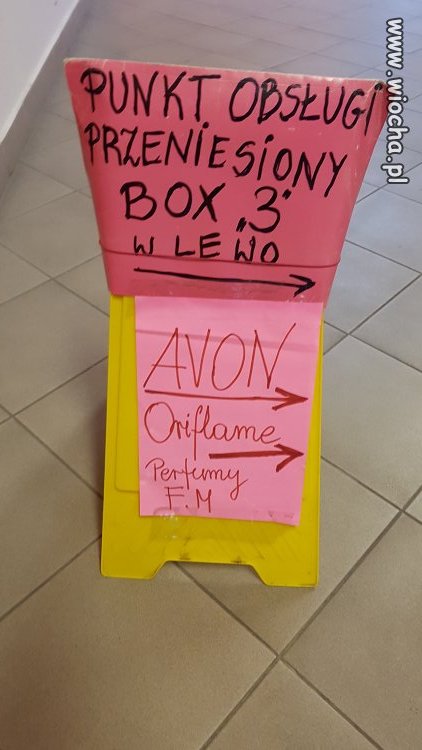 PUNKT OBSŁUGI
PRZENIESIONY
BOX „3"
W LEWO
AVON
Oriflame
Perfumy
F.M
www.wiocha.pl